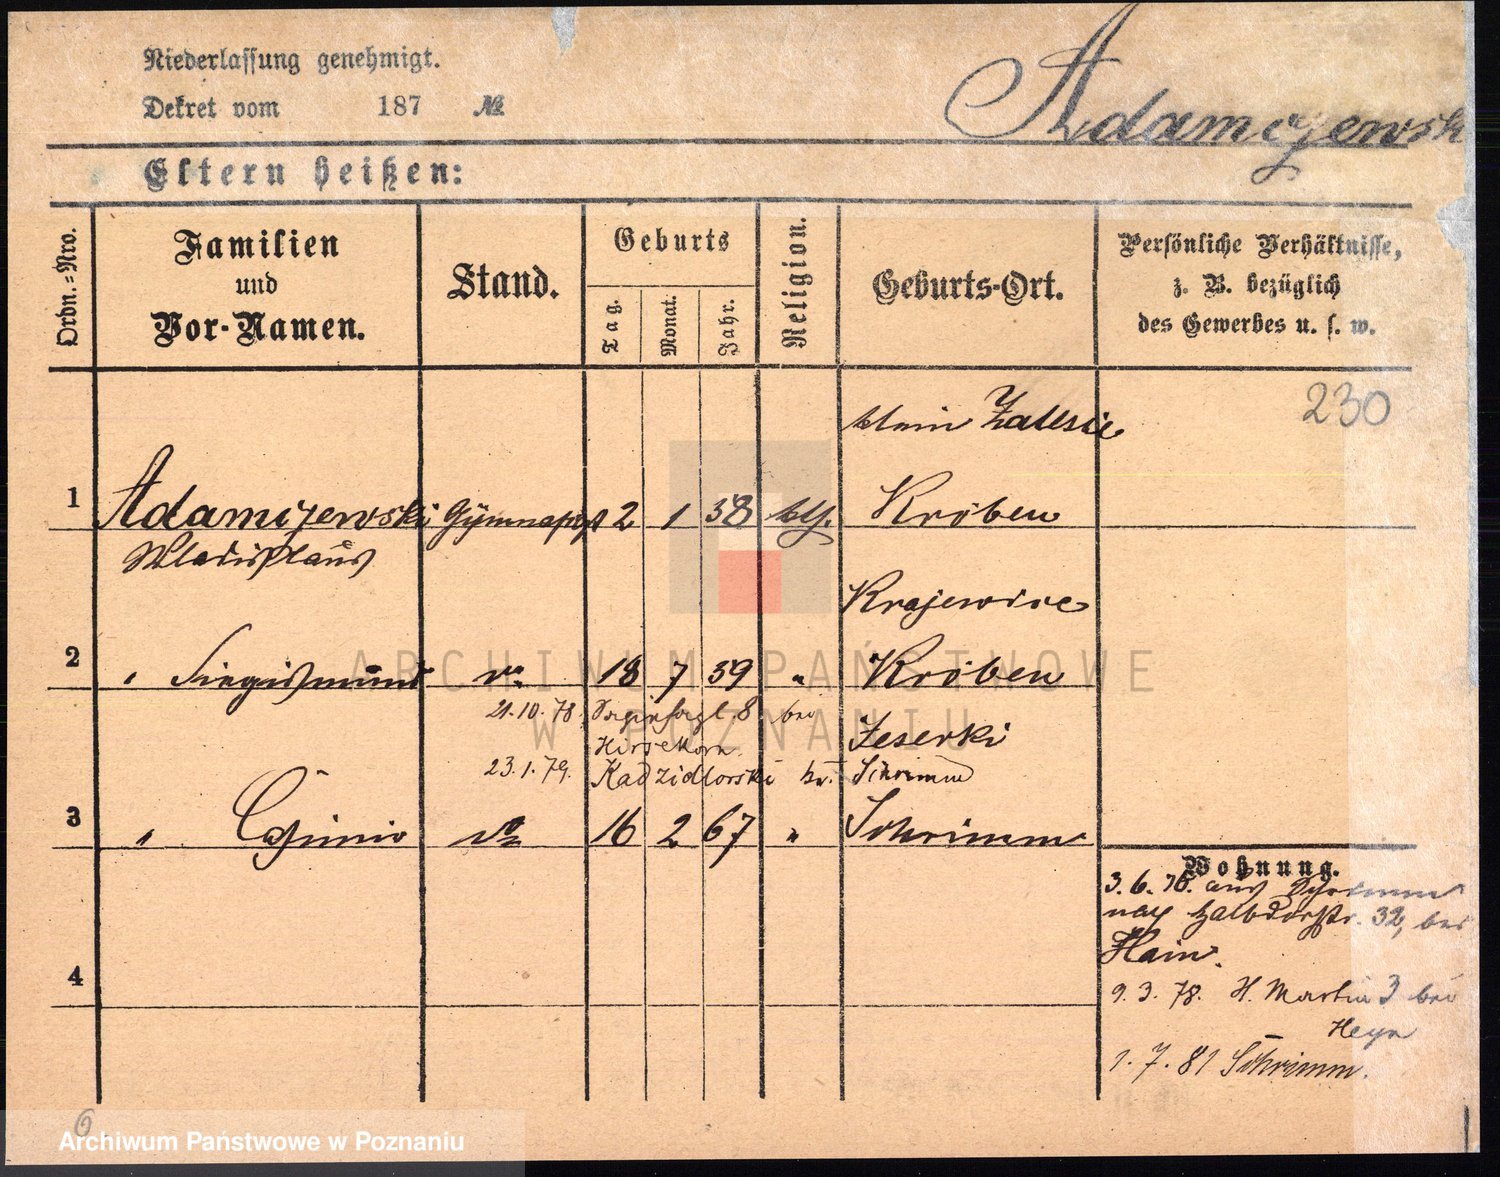 Niederlassung genehmigt.
Dekret vom 187 №
Adamczewski
Eltern heißen:
Ordn.=Nro.
Familien
und
Vor-Namen.
Stand.
Geburts
Tag.
Monat.
Jahr.
Religion.
Geburts-Ort.
Persönliche Verhältnisse,
z. B. bezüglich
des Gewerbes u. s. w.
230
klein Zalesie
1 Adamczewski Gymnasiast 2 1 58 kth. Kröben
Wladislaus
Krajewice
2 " Siegismund do 18 7 59 " Kröben
21.10.78. 8 bei Jeserki
Hirsekorn
23.1.79. Kadzidlorski Schrimm
3 " Casimir do 16 2 67 " Schrimm
Wohnung.
3.6.76. aus Schrimm
nach Halbdorfstr. 32, bei
Hain.
4
9.3.78. H. Martin 3 bei
Heyn
1.7.81 Schrimm.
6
ARCHIWUM PAŃSTWOWE
W POZNANIU
Archiwum Państwowe w Poznaniu